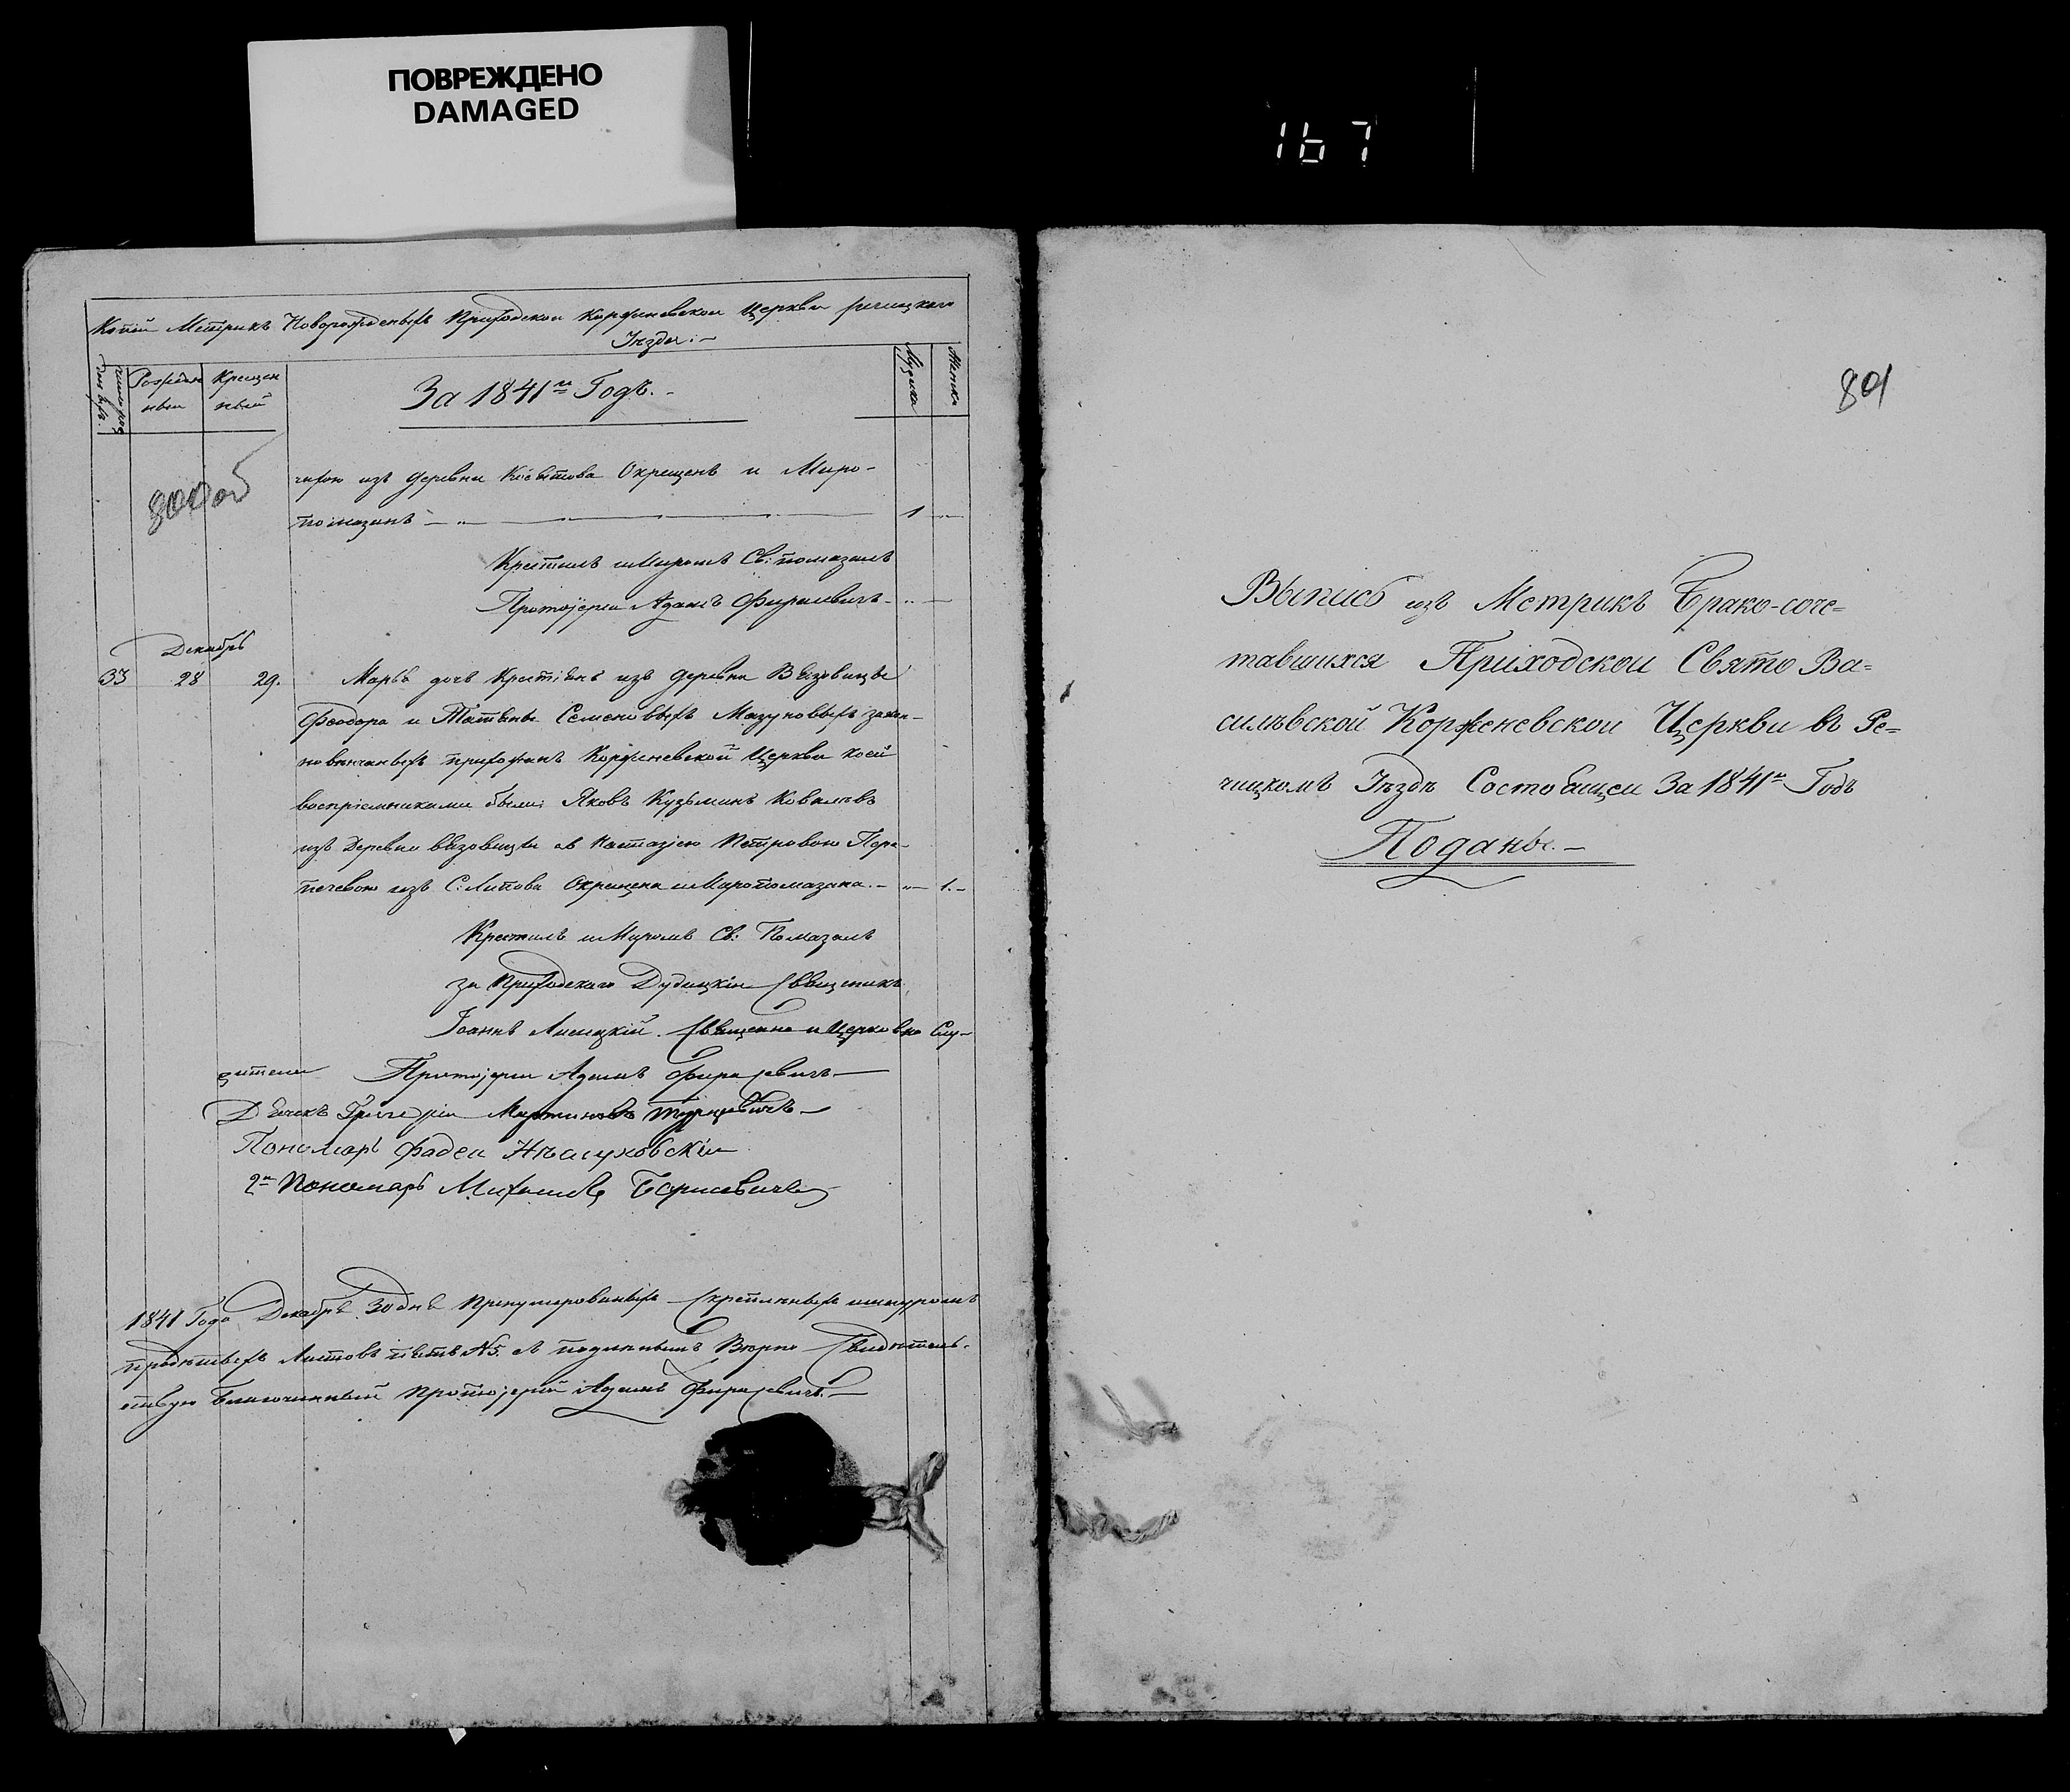 ПОВРЕЖДЕНО
DAMAGED
167
Копія Метрикъ Новорожденыхъ Приходской Корженевской Церкви речицкаго
Уезда:-
Рожден
ныи
Крещен
ный
За 1841й Годъ.-
Мужска
Женска
800 об
из деревни Окрещенъ и Миро-
помазанъ - 1
Крестилъ и Миромъ Св: помазалъ
Протоіереи Адамъ
Декабрь
33 28 29. Марья дочъ Крестіянъ изъ деревни Вязовицы
Феодора и Татяны Семеновыхъ Мазуновыхъ закон-
новенчаныхъ прихожанъ Корженевской Церкви коей
воспріемниками были: Яковъ Кузьминъ Ковалевъ
изъ Деревни Вязовицы съ Настазіею Петровою
изъ С: Липова Окрещена и Миропомазана.- 1.-
Крестилъ и Миромъ Св: Помазалъ
за Приходскаго Дудицкіи Свящникъ
Іоаннъ Лисицкій. Священно и Церковно Слу-
жители Протоіереи Адамъ
Дьячекъ Григоріи Мартиновъ Турцевичъ-
Пономарь Фадеи
2й Пономарь Михаилъ Борисевичъ
1841 Года Декабря 30 дня Пренумерованыхъ Скрепленыхъ шнуромъ
Листовъ пять №5. съ подлинымъ Верно Свидетель-
ствую Благочинный Протоіерей Адамъ
801
Выпись изъ Метрикъ Брако-соче=
тавшихся Приходской Свято Ва=
сильвской Корженевской Церкви въ Ре=
чицкомъ Уездѣ Состоящеи За 1841й Годъ
Поданы.-